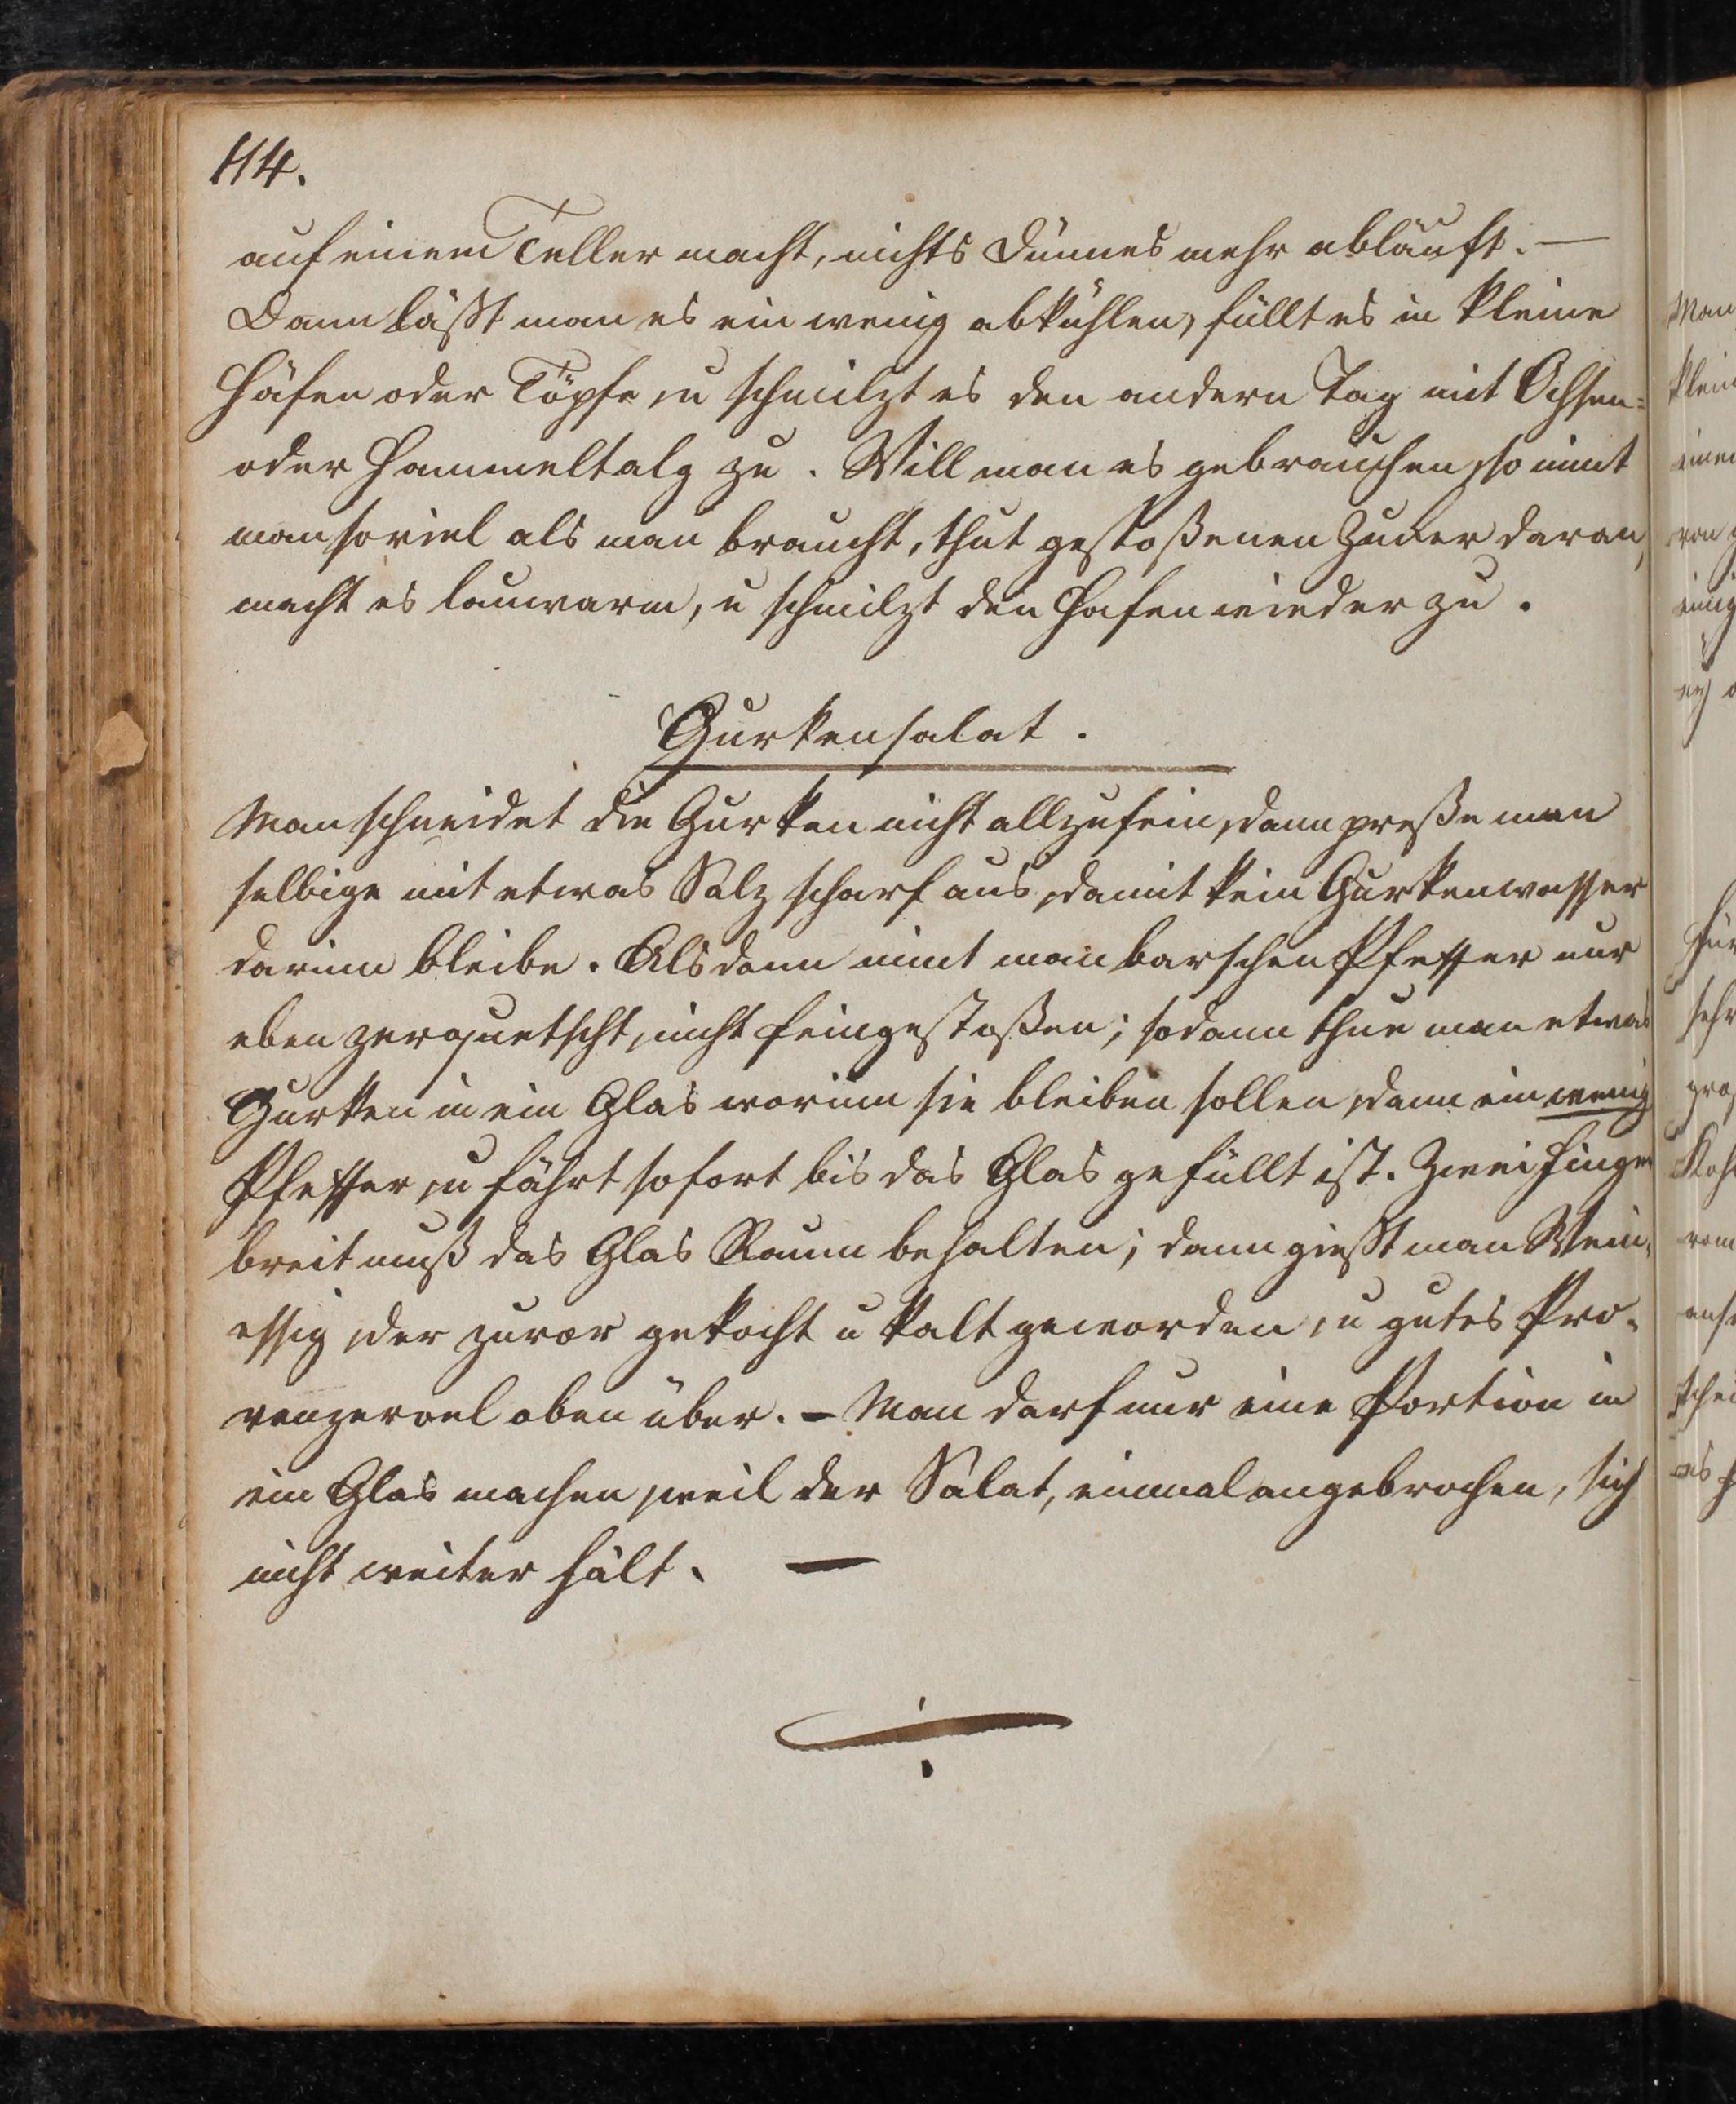 114.
auf einem Teller macht, nichts Dünnes mehr abläuft. —
Dann läßt man es ein wenig abkühlen, füllt es in kleine
Häfen oder Töpfe, u schmilzt es den andern Tag mit Ochsen=
oder Hammeltalg zu. Will man es gebrauchen, so nimt
man soviel als man braucht, thut gestoßenen Zucker daran,
macht es lauwarm, u schmilzt den Hafen wieder zu.
Gurkensalat.
Man schneidet die Gurken nicht allzufein, dann presse man
selbige mit etwas Salz scharf aus, damit kein Gurkenwasser
darinn bleibe. Alsdann nimt man barschen Pfeffer nur
eben zerquetscht, nicht feingestoßen; sodann thue man etwas
Gurken in ein Glas worinn sie bleiben sollen, dann ein wenig
Pfeffer, u fährt sofort bis das Glas gefüllt ist. Zwei Finger
breit muß das Glas Raum behalten; dann gießt man Wein=
essig, der zuvor gekocht u kalt geworden, u gutes Pro=
venzeroel oben über. – Man darf nur eine Portion in
ein Glas machen, weil der Salat, einmal angebrochen, sich
nicht weiter hält. —
Man
klein
einen
von
einig
Für
sehr
Kohl
vom